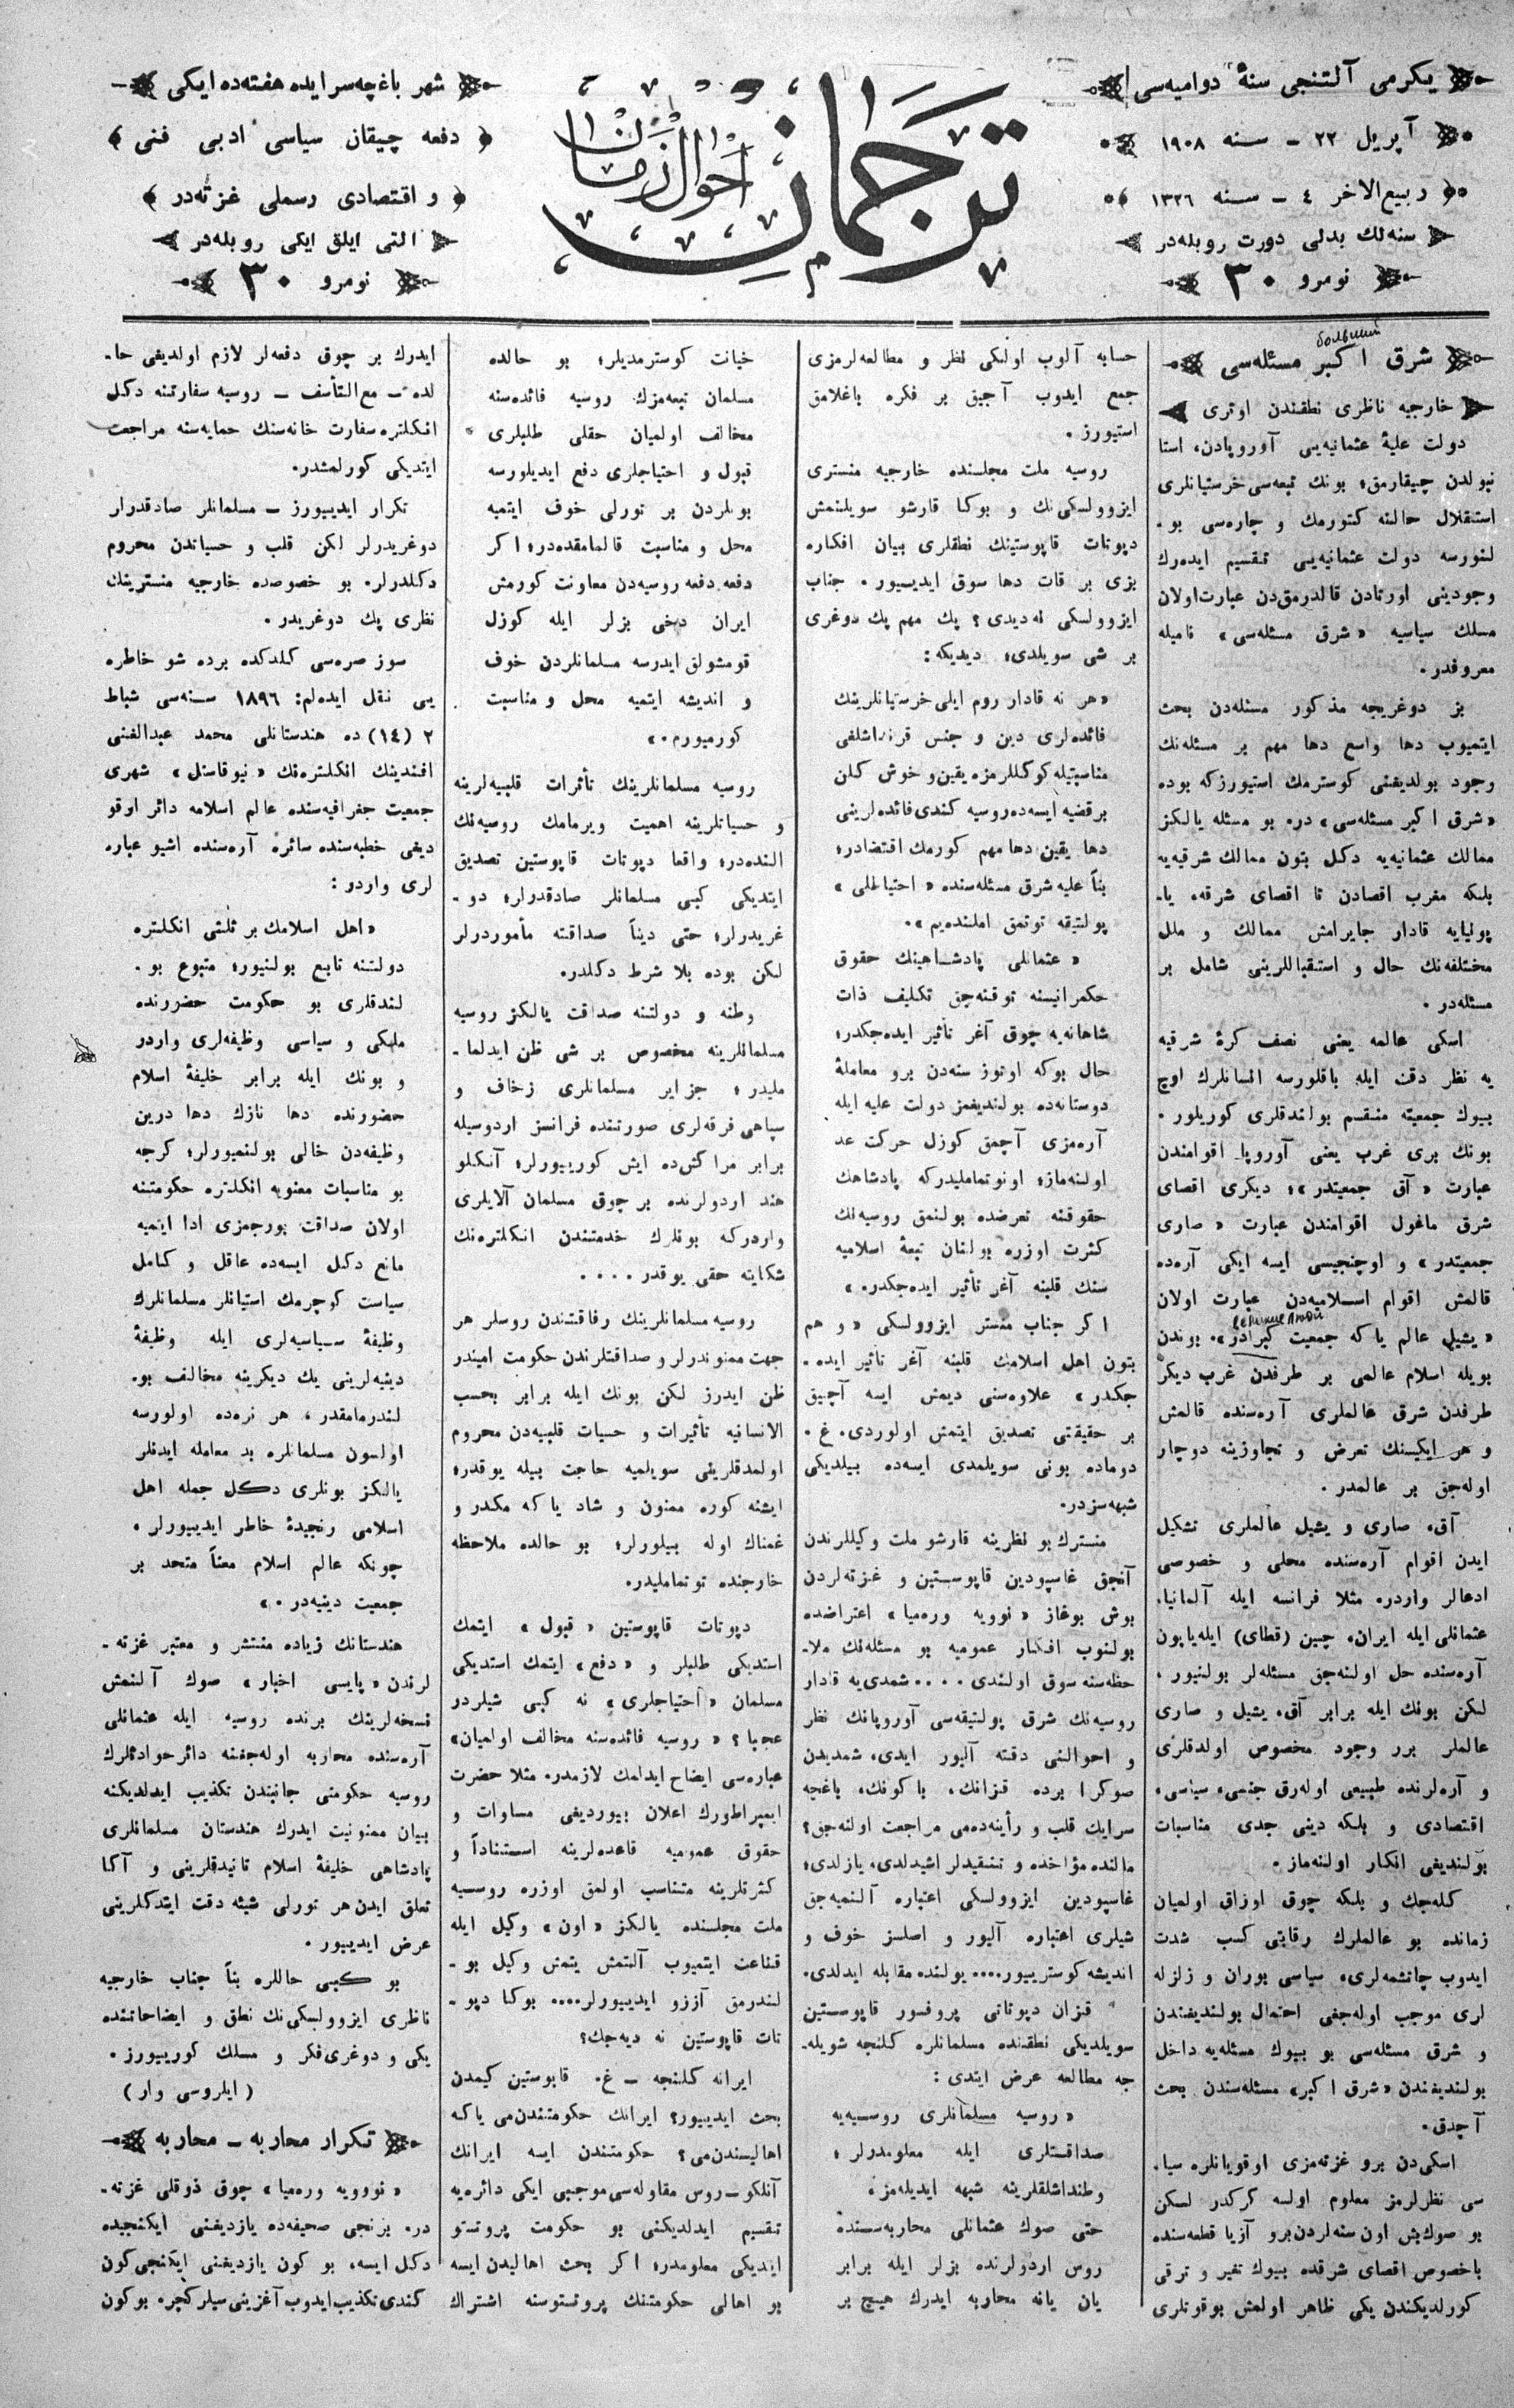 یكرمی آلتنجی سنۀ دوامیه‌سی
آپریل ۲۲ ـ سنه ۱۹۰۸
ربیع‌الاخر ٤ ـ سنه ۱۳۲٦
سنه‌لك بدلی دورت روبله‌در
نومرو ۳۰
ترجمان
احوال زمان
شهر باغچه‌سرایده هفته‌ده ایكی
دفعه چیقان سیاسی ادبی فنی
و اقتصادی رسملی غزته‌در
التی ایلق ایكی روبله‌در
نومرو ۳۰
شرق اكبر مسئله‌سی
خارجیه ناظری نطقندن اوتری
دولت علیۀ عثمانیه‌یی آوروپادن، استا
نبولدن چیقارمق؛ بونك تبعه‌سی خرستیانلری
استقلال حالنه كتورمك و چاره‌سی بو-
لنورسه دولت عثمانیه‌یی تقسیم ایده‌رك
وجودینی اورتادن قالدرمق‌دن عبارت اولان
مسلك سیاسیه «شرق مسئله‌سی» نامیله
معروفدر.
بز دوغریجه مذكور مسئله‌دن بحث
ایتمیوب دها واسع دها مهم بر مسئله‌نك
وجود بولدیغنی كوسترمك استیورزكه بوده
«شرق اكبر مسئله‌سی» در. بو مسئله یالكز
ممالك عثمانیه‌یه دكل بتون ممالك شرقیه‌یه
بلكه مغرب اقصادن تا اقصای شرقه، یا-
پونیایه قادار جایرامش ممالك و ملل
مختلفه‌نك حال و استقباللرینی شامل بر
مسئله‌در.
اسكی عالمه یعنی نصف كرۀ شرقیه
یه نظر دقت ایله باقلورسه انسانلرك اوچ
بیوك جمعیته منقسم بولندقلری كوریلور.
بونك بری غرب یعنی آوروپا اقوامندن
عبارت «آق جمعیتدر»؛ دیكری اقصای
شرق ماغول اقوامندن عبارت «صاری
جمعیتدر» و اوچنجیسی ایسه ایكی آره‌ده
قالمش اقوام اسلامیه‌دن عبارت اولان
«یشیل عالم یاكه جمعیت كبرادر». بوندن
بویله اسلام عالمی بر طرفدن غرب دیكر
طرفدن شرق عالملری آره‌سنده قالمش
و هر ایكیسنك تعرض و تجاوزینه دوچار
اوله‌جق بر عالمدر.
آق، صاری و یشیل عالملری تشكیل
ایدن اقوام آره‌سنده محلی و خصوصی
ادعالر واردر. مثلا فرانسه ایله آلمانیا،
عثمانلی ایله ایران، چین (قطای) ایله یاپون
آره‌سنده حل اولنه‌جق مسئله‌لر بولنیور.
لكن بونك ایله برابر آق، یشیل و صاری
عالملر برر وجود مخصوص اولدقلری
و آره‌لرنده طبیعی اوله‌رق جنسی، سیاسی،
اقتصادی و بلكه دینی جدی مناسبات
بولندیغی انكار اولنه‌ماز.
كله‌جك و بلكه چوق اوزاق اولمیان
زمانده بو عالملرك رقابتی كسب شدت
ایدوب چاتشمه‌لری، سیاسی بوران و زلزله
لری موجب اوله‌جغی احتمال بولندیغندن
و شرق مسئله‌سی بو بیوك مسئله‌یه داخل
بولندیغندن «شرق اكبر» مسئله‌سندن بحث
آچدق.
اسكی‌دن برو غزته‌مزی اوقویانلره سیا-
سی نظرلرمز معلوم اولسه كركدر لسكن
بو صوك‌بش اون سنه‌لردن‌برو آزیا قطعه‌سنده
باخصوص اقصای شرقده بیوك تغیر و ترقی
كورلدیكندن یكی ظاهر اولمش بوقوتلری
حسابه آلوب اولكی نظر و مطالعه‌لرمزی
جمع ایدوب آچیق بر فكره باغلامق
استیورز.
روسیه ملت مجلسنده خارجیه منستری
ایزوولسكی‌نك و بوكا قارشو سویلنمش
دپوتات قاپوستینك نطقلری بیان افكاره
بزی بر قات دها سوق ایدییور. جناب
ایزوولسكی نه‌دیدی؟ پك مهم پك دوغری
بر شی سویلدی؛ دیدیكه:
«هر نه قادار روم ایلی خرستیانلرینك
فائده‌لری دین و جنس قرنداشلغی
مناسبتیله كوكللرمزه یقین‌و خوش كلن
برقضیه ایسه‌ده روسیه كندی فائده‌لرینی
دها یقین دها مهم كورمك اقتضادر؛
بناً علیه شرق مسئله‌سنده «احتیاطلی»
پولتیقه توتمق املنده‌یم».
«عثمانلی پادشاهینك حقوق
حكمرانیسنه توقنه‌جق تكلیف ذات
شاهانه‌یه چوق آغر تأثیر ایده‌جكدر؛
حال بوكه اوتوز سنه‌دن برو معاملۀ
دوستانه‌ده بولندیغمز دولت علیه ایله
آره‌مزی آچمق كوزل حركت عد
اولنه‌ماز؛ اونوتماملیدركه پادشاهك
حقوقنه تعرضده بولنمق روسیه‌نك
كثرت اوزره بولنان تبعۀ اسلامیه
سنك قلبنه آغر تأثیر ایده‌جكدر.»
اكر جناب منستر ایزوولسكی «و هم
بتون اهل اسلامك قلبنه آغر تأثیر ایده-
جكدر» علاوه‌سنی دیمش ایسه آچیق
بر حقیقتی تصدیق ایتمش اولوردی. غ.
دوماده بونی سویلمدی ایسه‌ده بیلدیكی
شبهه‌سزدر.
منسترك بو نظرینه قارشو ملت وكیللرندن
آنجق غاسپودین قاپوستین و غزته‌لردن
بوش بوغاز «نوویه وره‌میا» اعتراضده
بولنوب افكار عمومیه بو مسئله‌نك ملا-
حظه‌سنه سوق اولندی .... شمدی‌یه قادار
روسیه‌نك شرق پولتیقه‌سی آوروپانك نظر
و احوالنی دقته آلیور ایدی، شمدیدن
صوكرا برده قزانك، باكونك، باغچه
سرایك قلب و رأینه‌ده‌می مراجعت اولنه‌جق؟
مالنده مؤاخذه و تنقیدلر اشیدلدی، یازلدی؛
غاسپودین ایزوولسكی اعتباره آلنمیه‌جق
شیلری اعتباره آلیور و اصلسز خوف و
اندیشه كوسترییور.... یولنده مقابله ایدلدی.
قزان دپوتاتی پروفسور قاپوستین
سویلدیكی نطقنده مسلمانلره كلنجه شویله-
جه مطالعه عرض ایتدی:
«روسیه مسلمانلری روسیه‌یه
صداقتلری ایله معلومدرلر؛
وطنداشلقلرینه شبهه ایدیله‌مز.
حتی صوك عثمانلی محاربه‌سنده
روس اردولرنده بزلر ایله برابر
یان یانه محاربه ایدرك هیچ بر
خیانت كوسترمدیلر؛ بو حالده
مسلمان تبعه‌مزك روسیه فائده‌سنه
مخالف اولمیان حقلی طلبلری
قبول و احتیاجلری دفع ایدیلورسه
بونلردن بر تورلی خوف ایتمیه
محل و مناسبت قالمامقده‌در؛ اكر
دفعه دفعه روسیه‌دن معاونت كورمش
ایران دخی بزلر ایله كوزل
قومشولق ایدرسه مسلمانلردن خوف
و اندیشه ایتمیه محل و مناسبت
كورمیورم.»
روسیه مسلمانلرینك تأثرات قلبیه‌لرینه
و حسیاتلرینه اهمیت ویرمامك روسیه‌نك
النده‌در؛ واقعا دپوتات قاپوستین تصدیق
ایتدیكی كبی مسلمانلر صادقدرلر؛ دو-
غریدرلر؛ حتی دیناً صداقته مأموردرلر
لكن بوده بلا شرط دكلدر.
وطنه و دولتنه صداقت یالكز روسیه
مسلمانلرینه مخصوص بر شی ظن ایدلما-
ملیدر؛ جزایر مسلمانلری زخاف و
سپاهی فرقه‌لری صورتنده فرانسز اردوسیله
برابر مراكش‌ده ایش كورییورلر؛ آنكلو
هند اردولرنده بر چوق مسلمان آلایلری
واردركه بونلرك خدمتندن انكلتره‌نك
شكایته حقی یوقدر....
روسیه مسلمانلرینك رفاقتندن روسلر هر
جهت ممنوندرلر و صداقتلرندن حكومت امیندر
ظن ایدرز لكن بونك ایله برابر بحسب
الانسانیه تأثیرات و حسیات قلبیه‌دن محروم
اولمدقلرینی سویلمیه حاجت بیله یوقدر؛
ایشنه كوره ممنون و شاد یاكه مكدر و
غمناك اوله بیلورلر؛ بو حالده ملاحظه
خارجنده توتماملیدر.
دپوتات قاپوستین «قبول» ایتمك
استدیكی طلبلر و «دفع» ایتمك استدیكی
مسلمان «احتیاجلری» نه كبی شیلردر
عجبا؟ «روسیه فائده‌سنه مخالف اولمیان»
عباره‌سی ایضاح ایدلمك لازمدر. مثلا حضرت
ایمپراطورك اعلان بیوردیغی مساوات و
حقوق عمومیه قاعده‌لرینه استناداً و
كثرتلرینه متناسب اولمق اوزره روسیه
ملت مجلسنده یالكز «اون» وكیل ایله
قناعت ایتمیوب آلتمش یتمش وكیل بو-
لندرمق آرزو ایدییورلر.... بوكا دپو-
تات قاپوستین نه دیه‌جك؟
ایرانه كلنجه ـ غ. قاپوستین كیمدن
بحث ایدییور؟ ایرانك حكومتندن‌می یاكه
اهالیسندن‌می؟ حكومتندن ایسه ایرانك
آنكلو ـ روس مقاوله‌سی موجبی ایكی دائره‌یه
تقسیم ایدلدیكنی بو حكومت پروتستو
ایتدیكی معلومدر؛ اكر بحث اهالیدن ایسه
بو اهالی حكومتنك پروتستوسنه اشتراك
ایدرك بر چوق دفعه‌لر لازم اولدیغی حا-
لده ـ مع‌التأسف ـ روسیه سفارتنه دكل
انكلتره سفارت خانه‌سنك حمایه‌سنه مراجعت
ایتدیكی كورلمشدر.
تكرار ایدییورز ـ مسلمانلر صادقدرلر
دوغریدرلر لكن قلب و حسیاتدن محروم
دكلدرلر. بو خصوصده خارجیه منسترینك
نظری پك دوغریدر.
سوز صره‌سی كلدكده برده شو خاطره
یی نقل ایده‌لم: ۱۸۹٦ سنه‌سی شباط
۲ (۱٤) ده هندستانلی محمد عبدالغنی
افندینك انكلتره‌نك «نیوقاستل» شهری
جمعیت جغرافیه‌سنده عالم اسلامه دائر اوقو
دیغی خطبه‌سنده سائره آره‌سنده اشبو عباره
لری واردر:
«اهل اسلامك بر ثلثی انكلتره
دولتنه تابع بولنیور؛ متبوع بو-
لندقلری بو حكومت حضورنده
ملكی و سیاسی وظیفه‌لری واردر
و بونك ایله برابر خلیفۀ اسلام
حضورنده دها نازك دها درین
وظیفه‌دن خالی بولنمیورلر؛ كرچه
بو مناسبات معنویه انكلتره حكومتنه
اولان صداقت بورجمزی ادا ایتمیه
مانع دكل ایسه‌ده عاقل و كامل
سیاست كوچرمك استیانلر مسلمانلرك
وظیفۀ سیاسیه‌لری ایله وظیفۀ
دینیه‌لرینی یك دیكرینه مخالف بو-
لندرمامقدر، هر نره‌ده اولورسه
اولسون مسلمانلره بد معامله ایدنلر
یالكز بونلری دكل جمله اهل
اسلامی رنجیدۀ خاطر ایدییورلر.
چونكه عالم اسلام معناً متحد بر
جمعیت دینیه‌در.»
هندستانك زیاده منتشر و معتبر غزته-
لرندن «پایسی اخبار» صوك آلنمش
نسخه‌لرینك برنده روسیه ایله عثمانلی
آره‌سنده محاربه اوله‌جغنه دائر حوادثلرك
روسیه حكومتی جانبندن تكذیب ایدلدیكنه
بیان ممنونیت ایدرك هندستان مسلمانلری
پادشاهی خلیفۀ اسلام تانیدقلرینی و آكا
تعلق ایدن هر تورلی شیئه دقت ایتدكلرینی
عرض ایدییور.
بو كبی حاللره بناً جناب خارجیه
ناظری ایزوولسكی‌نك نطق و ایضاحاتنده
یكی و دوغری فكر و مسلك كورییورز.
(ایلروسی وار)
تكرار محاربه ـ محاربه
«نوویه وره‌میا» چوق ذوقلی غزته-
در. برنجی صحیفه‌ده یازدیغنی ایكنجیده
دكل ایسه، بو كون یازدیغنی ایكنجی كون
كندی تكذیب ایدوب آغزینی سیلر كچر. بو كون